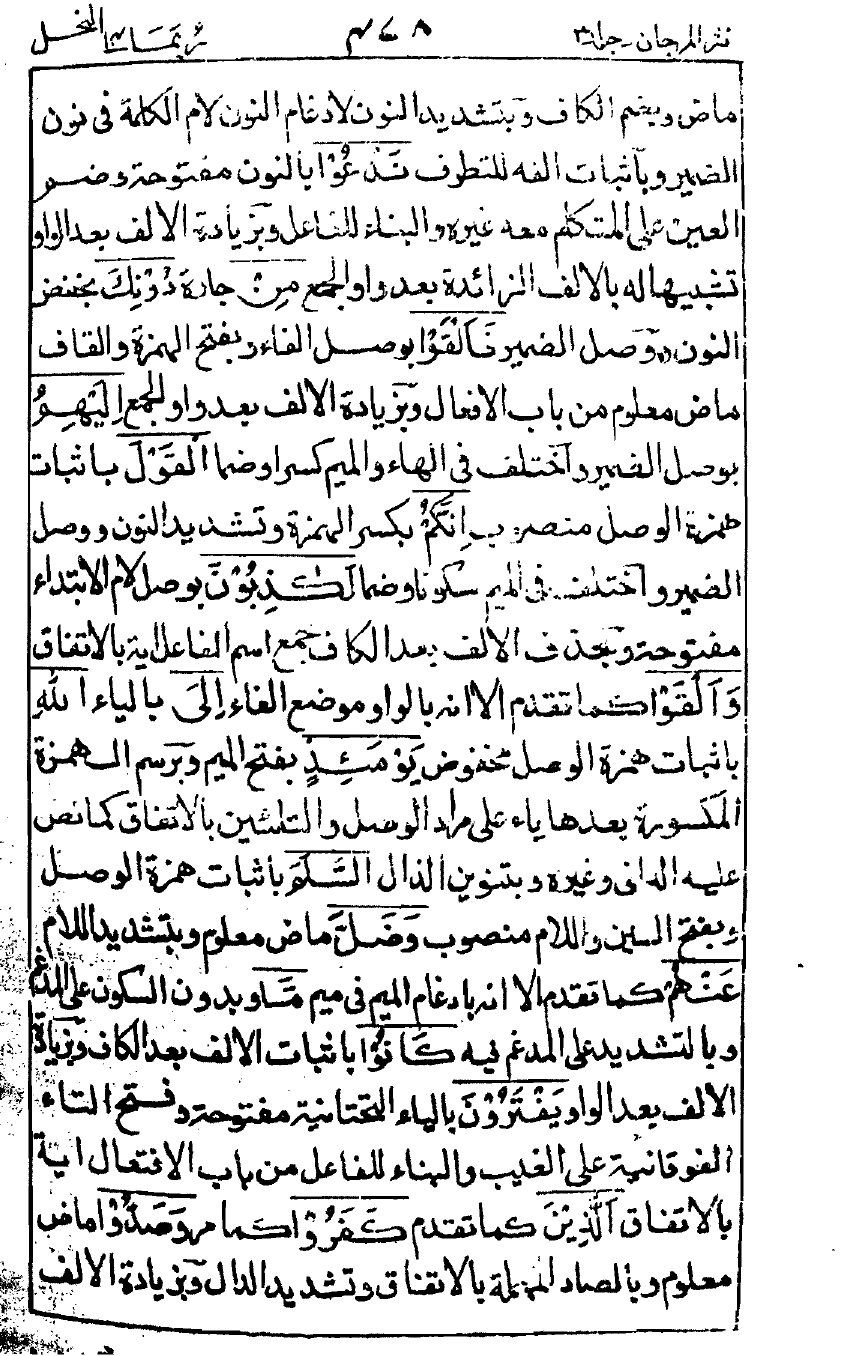 نثر المرجان - جلد ٣ ٤٧٨ ربما ١٤ النحل
ماض وبضم الكاف وبتشديد النون لادغام النون لام الكلمة فى نون
الضمير وبآثبات الفه للتطرف نَدْعُوْا بالنون مفتوحة وضم
العين على المتكلم معه غيره والبناء للفاعل وبزيادة الالف بعد الواو
تشبيها له بالالف الزائدة بعد واو الجمع مِنْ جارة دُوْنِكَ بخفض
النون ووصل الضمير فَاَلْقَوْا بوصل الفاء وبفتح الهمزة والقاف
ماض معلوم من باب الافعال وبزيادة الالف بعد واو الجمع اِلَيْهِمُ
بوصل الضمير واختلف فى الهاء والميم كسرا وضما الْقَوْلَ باثبات
همزة الوصل منصوب اِنَّكُمْ بكسر الهمزة وتشديد النون ووصل
الضمير واختلف فى الميم سكونا وضما لَكٰذِبُوْنَ بوصل لام الابتداء
مفتوحة وبحذف الالف بعد الكاف جمع اسم الفاعل اية بالاتفاق
وَاَلْقَوْا كما تقدم الا انه بالواو موضع الفاء اِلَى بالياء اللهِ
باثبات همزة الوصل مخفوض يَوْمَئِذٍ بفتح الميم وبرسم الهمزة
المكسورة بعدها ياء على مراد الوصل والتليين بالاتفاق كما نص
عليه الدانى وغيره وبتنوين الذال السَّلَمَ باثبات همزة الوصل
وبفتح السين واللام منصوب وَضَلَّ ماض معلوم وبتشديد اللام
عَنْهُمْ كما تقدم الا انه بادغام الميم فى ميم مَّا وبدون السكون على المدغم
وبالتشديد على المدغم فيه كَانُوْا باثبات الالف بعد الكاف وبزيادة
الالف بعد الواو يَفْتَرُوْنَ بالياء التحتانية مفتوحة وفتح التاء
الفوقانية على الغيب والبناء للفاعل من باب الافتعال اية
بالاتفاق اَلَّذِيْنَ كما تقدم كَفَرُوْا كما مر وَصَدُّوْا ماض
معلوم وبالصاد المهملة بالاتفاق وتشديد الدال وبزيادة الالف